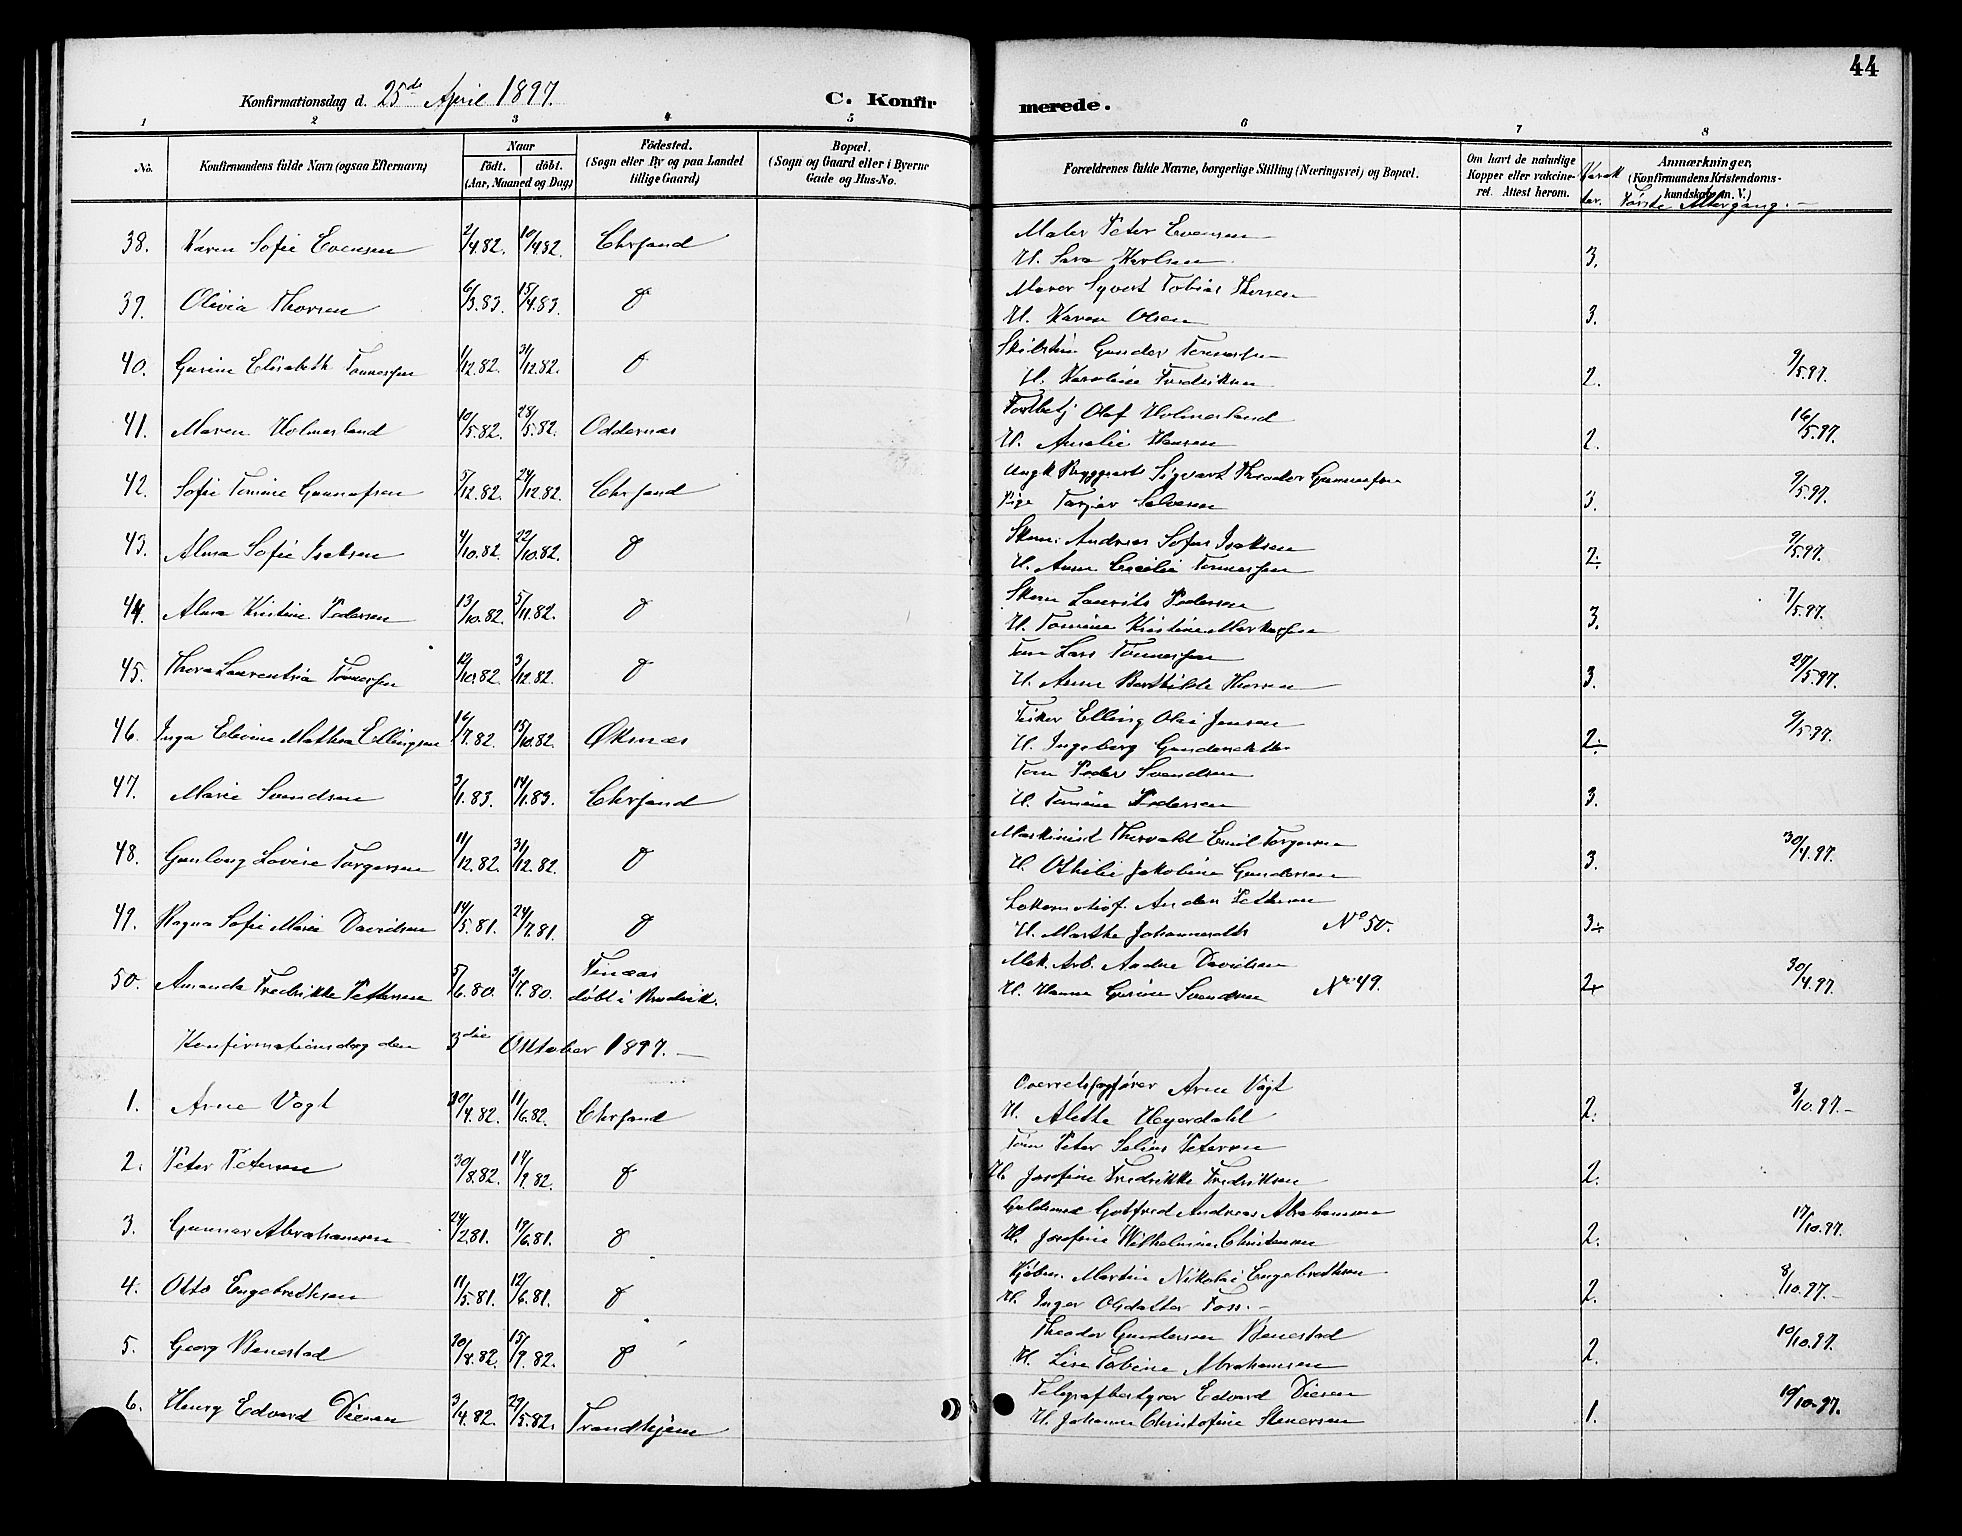 44
Konfirmationsdag d. 25de April 1897. C. Konfirmerede.
1 2 3 4 5 6 7 8
No. Konfirmandens fulde Navn (ogsaa Efternavn) Naar født. døbt. (Aar, Maaned og Dag) Fødested. (Sogn eller By og paa Landet tillige Gaard) Bopæl. (Sogn og Gaard eller i Byerne Gade og Hus-No. Forældrenes fulde Navne, borgerlige Stilling (Næringsvei) og Bopæl. Om havt de naturlige Kopper eller vakcineret. Attest herom. Karakter. Anmærkninger, (Konfirmandens Kristendomskundskab m. V.) Første Altergang. –
38. Karen Sofie Evensen 2/4.82. 10/4.82. Chrsand Maler Peter Evensen
H. Sara Karlsen 3.
39. Olivia Thorsen 6/3.83. 15/4.83. d Murer Syvert Tobias Thorsen
H. Karen Olsen 3.
40. Gurine Elisabeth Tønnessen 1/12.82. 31/12.82. d Gunder Tønnessen
H. Karoline Fredriksen 2. 9/5.97.
41. Maren Holmesland 10/5.82. 28/5.82. Oddernæs Toldbetj Olaf Holmesland
H. Amalie Hansen 2. 16/5.97.
42. Sofie Tomine Gunnufsen 5/12.82. 24/12.82. Chrsand Ungk. Sigvart Theodor Gunnufsen
Pige Torjør Salvesen 3. 9/5.97.
43. Alma Sofie Isaksen 4/10.82. 22/10.82. d Skom. Andreas Sofus Isaksen
H. Anne Cecilie Tønnessen 2. 9/5.97.
44. Alma Kristine Pedersen 13/10.82. 5/11.82. d Skom Laurits Pedersen
H. Tomine Kristine Markussen 3. 7/5.97.
45. Thora Laurentia Tønnessen 12/10.82. 3/12.82. d Tøm Lars Tønnessen
H. Anne Berthilde Thorsen 3. 27/5.97.
46. Inga Elevine Mathea Ellingsen 16/7.82. 15/10.82. Øksnæs Fisker Elling Olai Jensen
H. Ingeborg Gundersdatter 2. 9/5.97.
47. Marie Svendsen 3/1.83. 14/1.83. Chrsand Tøm Peder Svendsen
H. Tomine Pedersen 3.
48. Gunlaug Lovise Torgersen 11/12.82. 31/12.82. d Maskinist Thorvald Emil Torgersen
H. Othilie Jakobine Gundersen 3. 30/4.97.
49. Ragna Sofie Marie Davidsen 14/5.81. 24/7.81. d Lokomotivf. Anders Pettersen
H. Marthe Johannesdtr No 50. 3
50. Amanda Fredrikke Pettersen 5/6.80. 3/7.80. døbt i Mek. Arb. Andre Davidsen
H. Hanne Gurine Svendsen No 49. 2 30/4.97.
Konfirmationsdag den 3die Oktober 1897. –
1. Arne Vogt 30/4.82. 11/6.82. Chrsand Overretssagfører Arne Vogt
H. Alethe Heyerdahl 2. 8/10.97.–
2. Peter Petersen 30/8.82. 17/9.82. d Tøm Peter Selius Petersen
H. Josefine Fredrikke Fredriksen 2.
3. Gunnar Abrahamsen 24/2.81. 19/6.81. d Guldsmed Gotfred Andreas Abrahamsen
H. Josefine Wilhelmine Christensen 2. 17/10.97.
4. Otto Engebrethsen 11/5.81. 12/6.81. d Kjøbm. Martin Nikolai Engebrethsen
H. Inger Olsdatter Foss. – 2. 8/10.97.–
5. Georg Benestad 20/8.82. 15/9.82. d Theodor Gundersen Benestad
H. Lise Tobine Abrahamsen 2. 10/10.97.
6. Henry Edvard Diesen 3/4.82. 29/5.82. Trondhjem Telegrafbestyrer Edvard Diesen
H. Johanne Christofine Stenersen 1. 10/10.97.